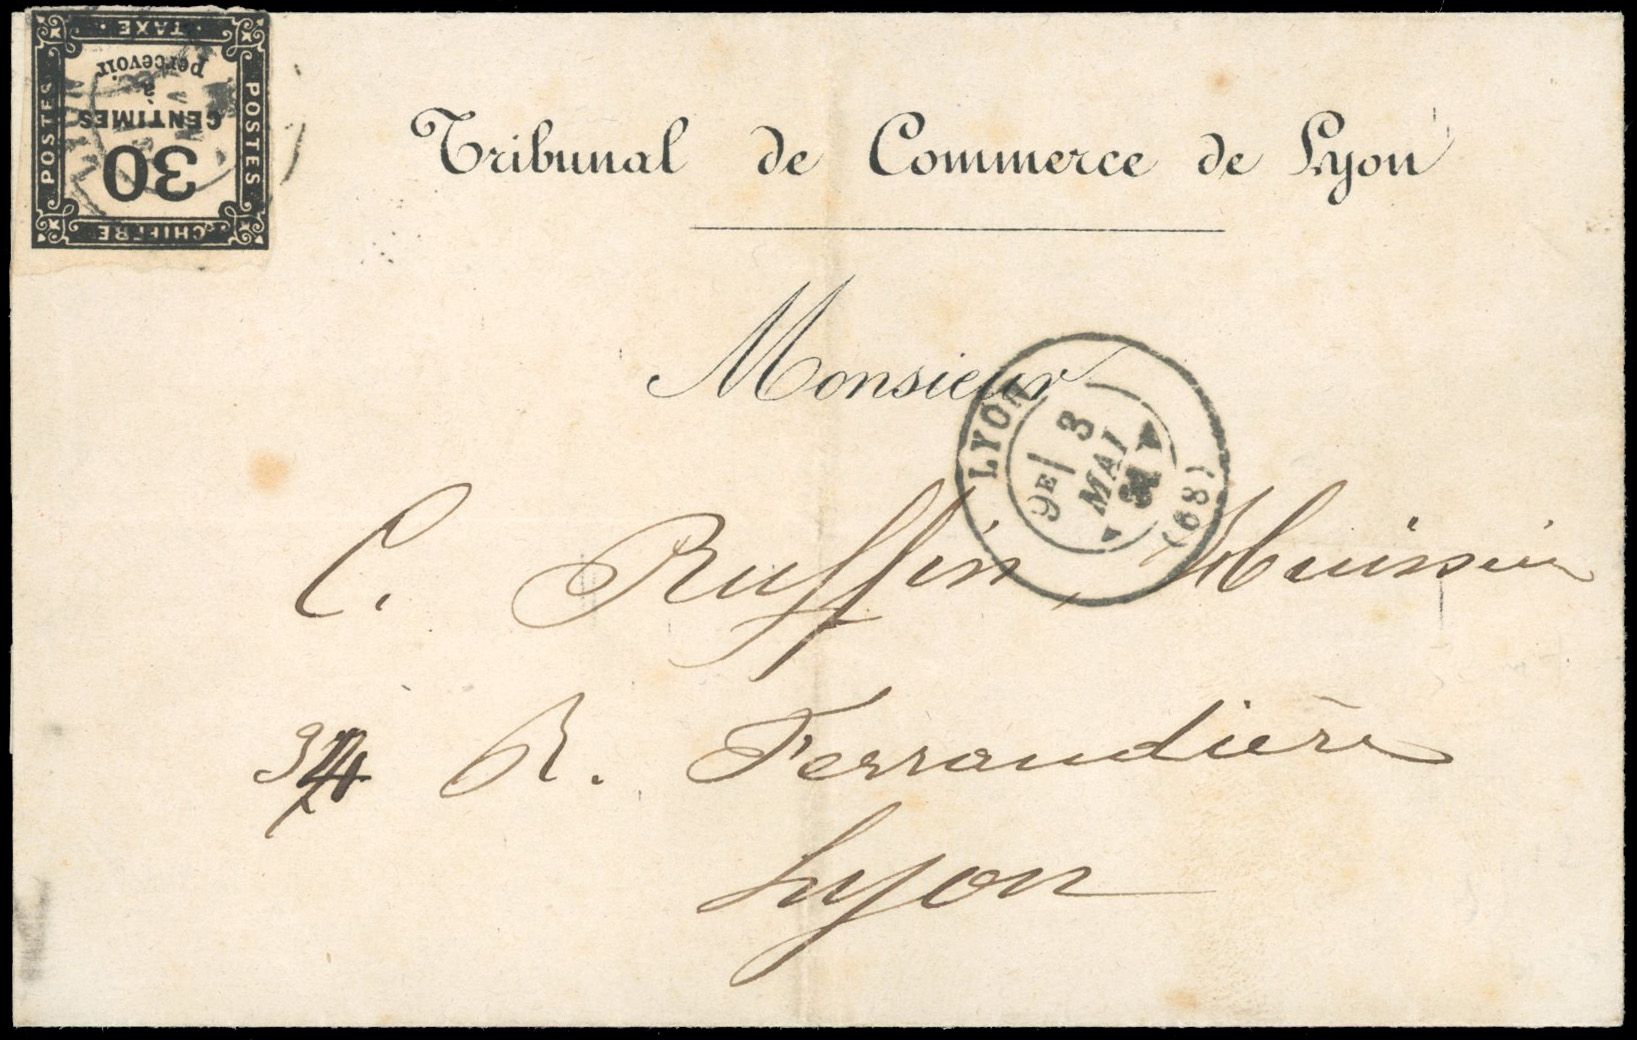 CHIFFRE
30
CENTIMES
à
percevoir
· TAXE ·
POSTES
POSTES
Tribunal de Commerce de Lyon
Monsieur
LYON
9E/ 3
MAI
(68)
C. Ruffin, Huissier
R. Ferrandière
Lyon